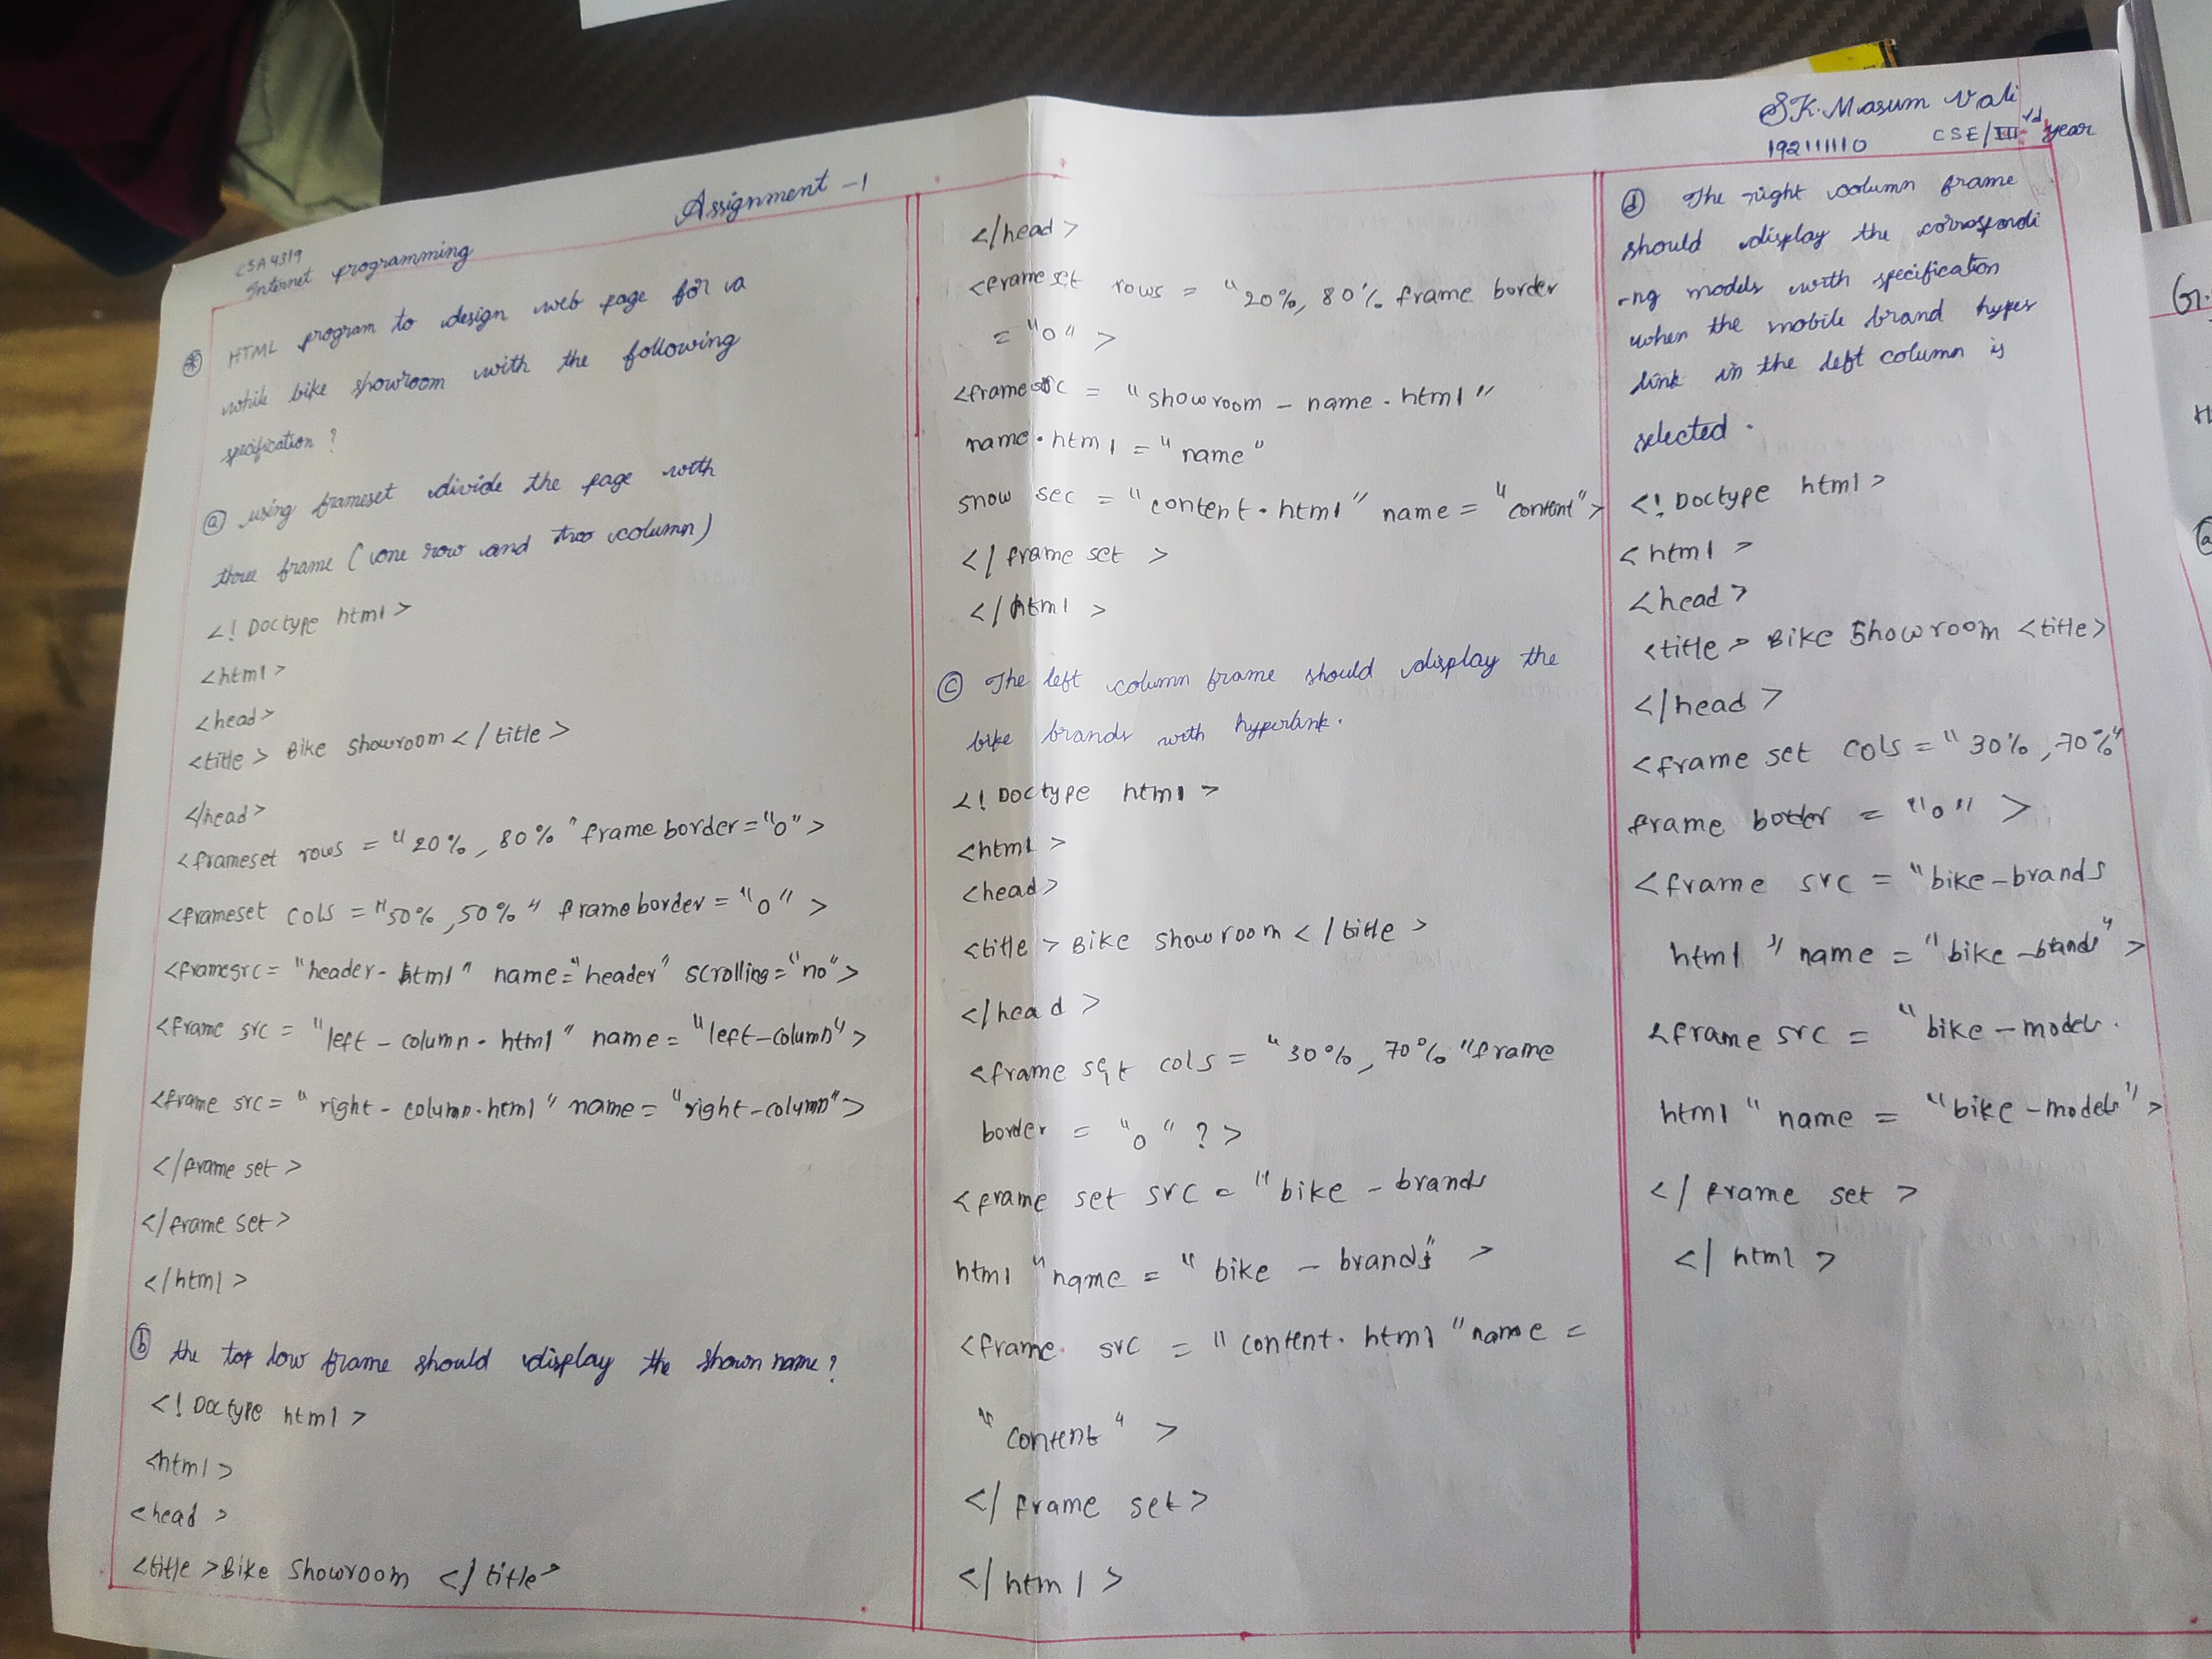 Assignment -1
SK. Masum Vali
192111110 CSE/IIIrd year
CSA4319
Internet programming
HTML program to design web page for a
while bike showroom with the following
specification ?
ⓐ using frameset divide the page with
three frame ( one row and two column)
<! Doctype html>
<html>
<head>
<title> Bike showroom </title>
</head>
<frameset rows = "20%, 80%" frame border="0">
<frameset cols = "50%, 50%" frameborder = "0" >
<framesrc = "header- html" name="header" scrolling="no">
<frame src = "left - column. html" name = "left-column">
<frame src = " right - column.html" name = "right-column">
</frame set >
</frame set>
</html>
ⓑ the top low frame should display the shown name?
<! Doctype html>
<html>
<head >
<title >Bike Showroom </title>
</head>
<frame set rows = "20%, 80% frame border
= "0" >
<frame src = "showroom - name . html"
name.html = "name"
snow sec = "content. html" name = "content">
</ frame set >
</html >
ⓒ The left column frame should display the
bike brands with hyperlink.
<! Doctype html >
<html >
<head>
<title > Bike showroom </title >
</head >
<frame set cols = "30%, 70%" frame
border = "0" ?>
<frame set src = "bike - brands
html "name = "bike - brands" >
<frame src = "content. html "name =
"content" >
</ frame set>
</html>
ⓓ The right column frame
should display the correspondi
-ng models with specification
when the mobile brand hyper
link in the left column is
selected .
<! Doctype html >
<html >
<head>
<title > Bike Showroom <title>
</head >
<frame set cols = "30%, 70%"
frame border = "0" >
<frame src = "bike-brands
html " name = "bike -brands" >
<frame src = "bike - models.
html " name = "bike -models" >
</ frame set >
</ html >
G.
H
ⓐ